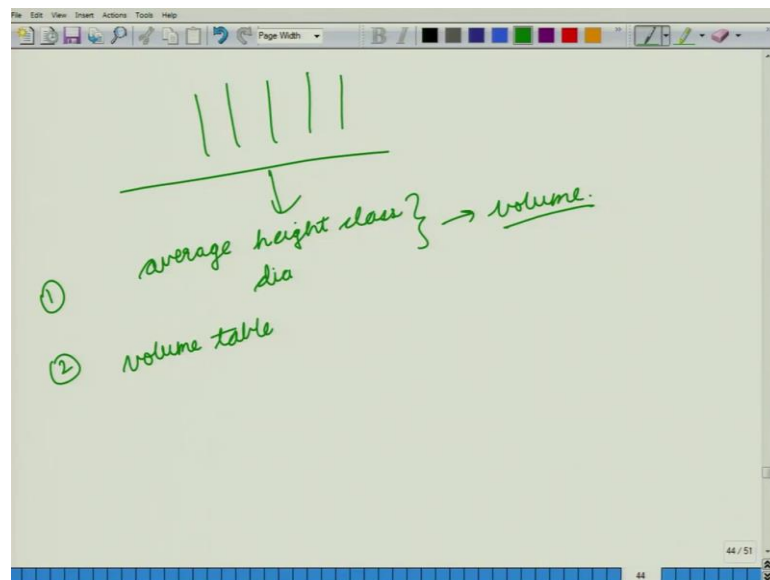 File Edit View Insert Actions Tools Help
Page Width B I
average height class } → volume.
dia
① 
② volume table
44 / 51
44